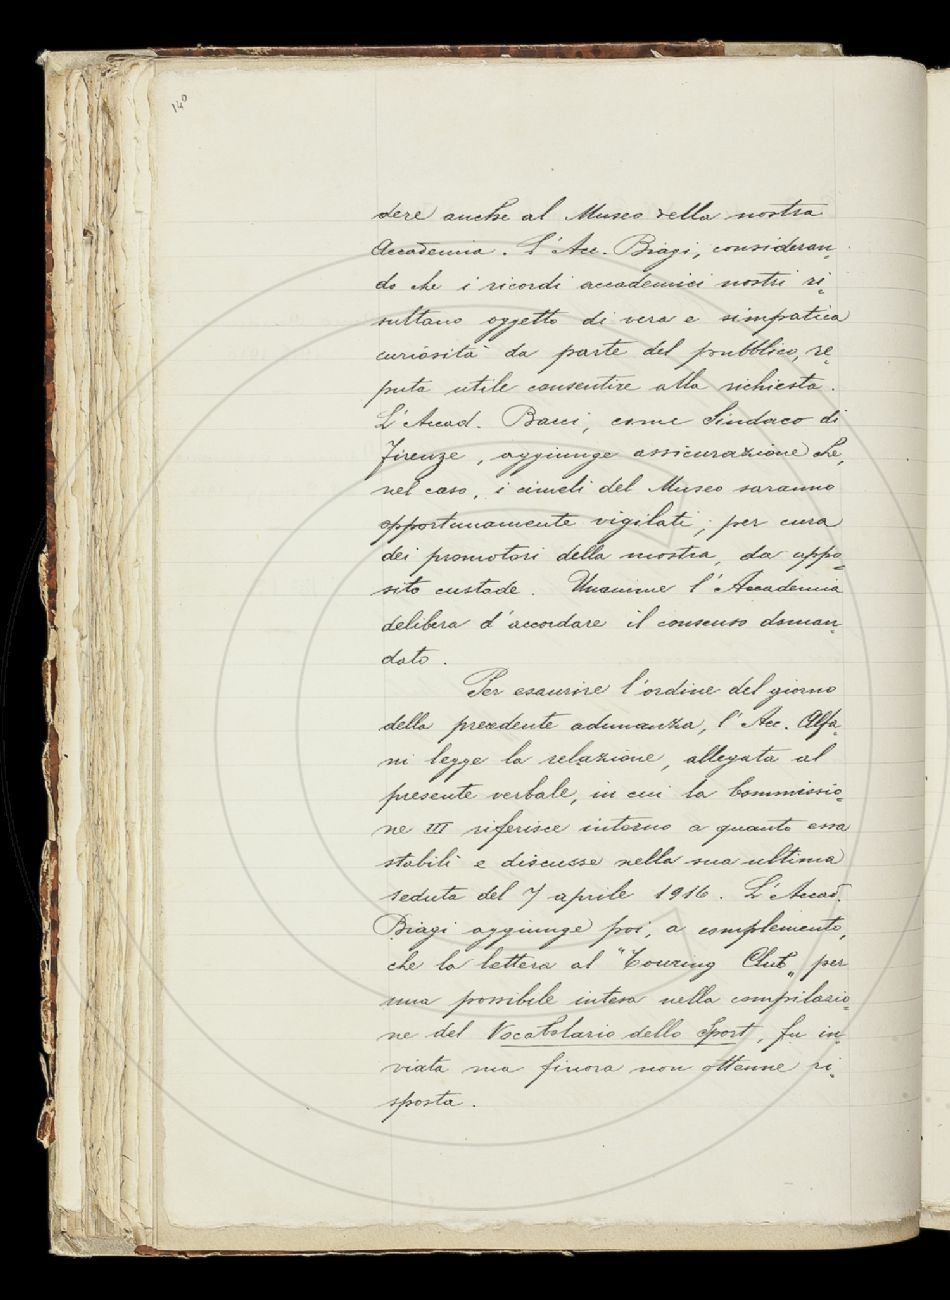 140
dere anche al Museo della nostra
Accademia. L'Acc. Biagi, consideran-
do che i ricordi accademici nostri ri-
sultano oggetto di vera e simpatica
curiosità da parte del pubblico, re-
puta utile consentire alla richiesta.
L'Accad. Bacci, come Sindaco di
Firenze, aggiunge assicurazione che,
nel caso, i cimeli del Museo saranno
opportunamente vigilati, per cura
dei promotori della mostra, da appo-
sito custode. Unanime l'Accademia
delibera d'accordare il consenso doman-
dato.
Per esaurire l'ordine del giorno
della precedente adunanza, l'Acc. Alfa-
ni legge la relazione, allegata al
presente verbale, in cui la Commissio-
ne III riferisce intorno a quanto essa
stabilì e discusse nella sua ultima
seduta del 7 aprile 1916. L'Accad.
Biagi aggiunge poi, a complemento,
che la lettera al "Touring Club„ per
una possibile intesa nella compilazio-
ne del Vocabolario dello Sport, fu in-
viata ma finora non ottenne ri-
sposta.